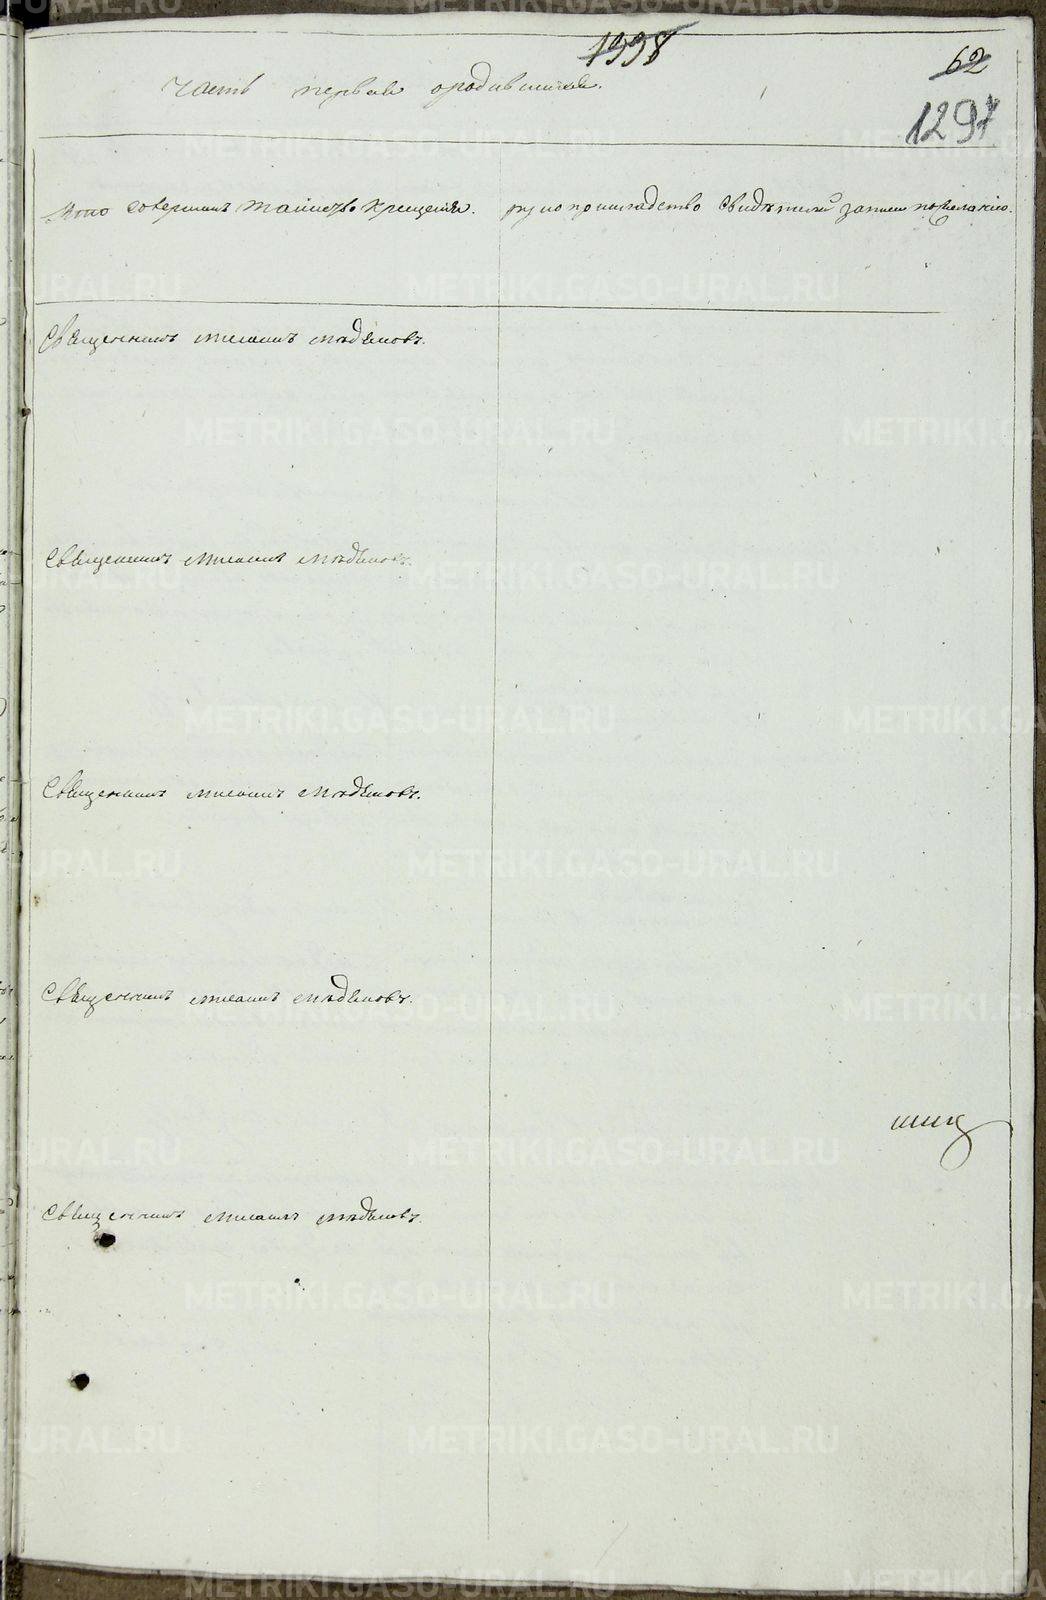 1998
62
Часть первая ородившихся.
1297
Кто совершалъ таинство крещенія.
рукоприкладство свидѣтелей записи пожеланію.
Священникъ Михаилъ Мѣдѣновъ.
Священникъ Михаилъ Мѣдѣновъ.
Священникъ Михаилъ Мѣдѣновъ.
Священникъ Михаилъ Мѣдѣновъ.
Священникъ Михаилъ Мѣдѣновъ.
METRIKI.GASO-URAL.RU